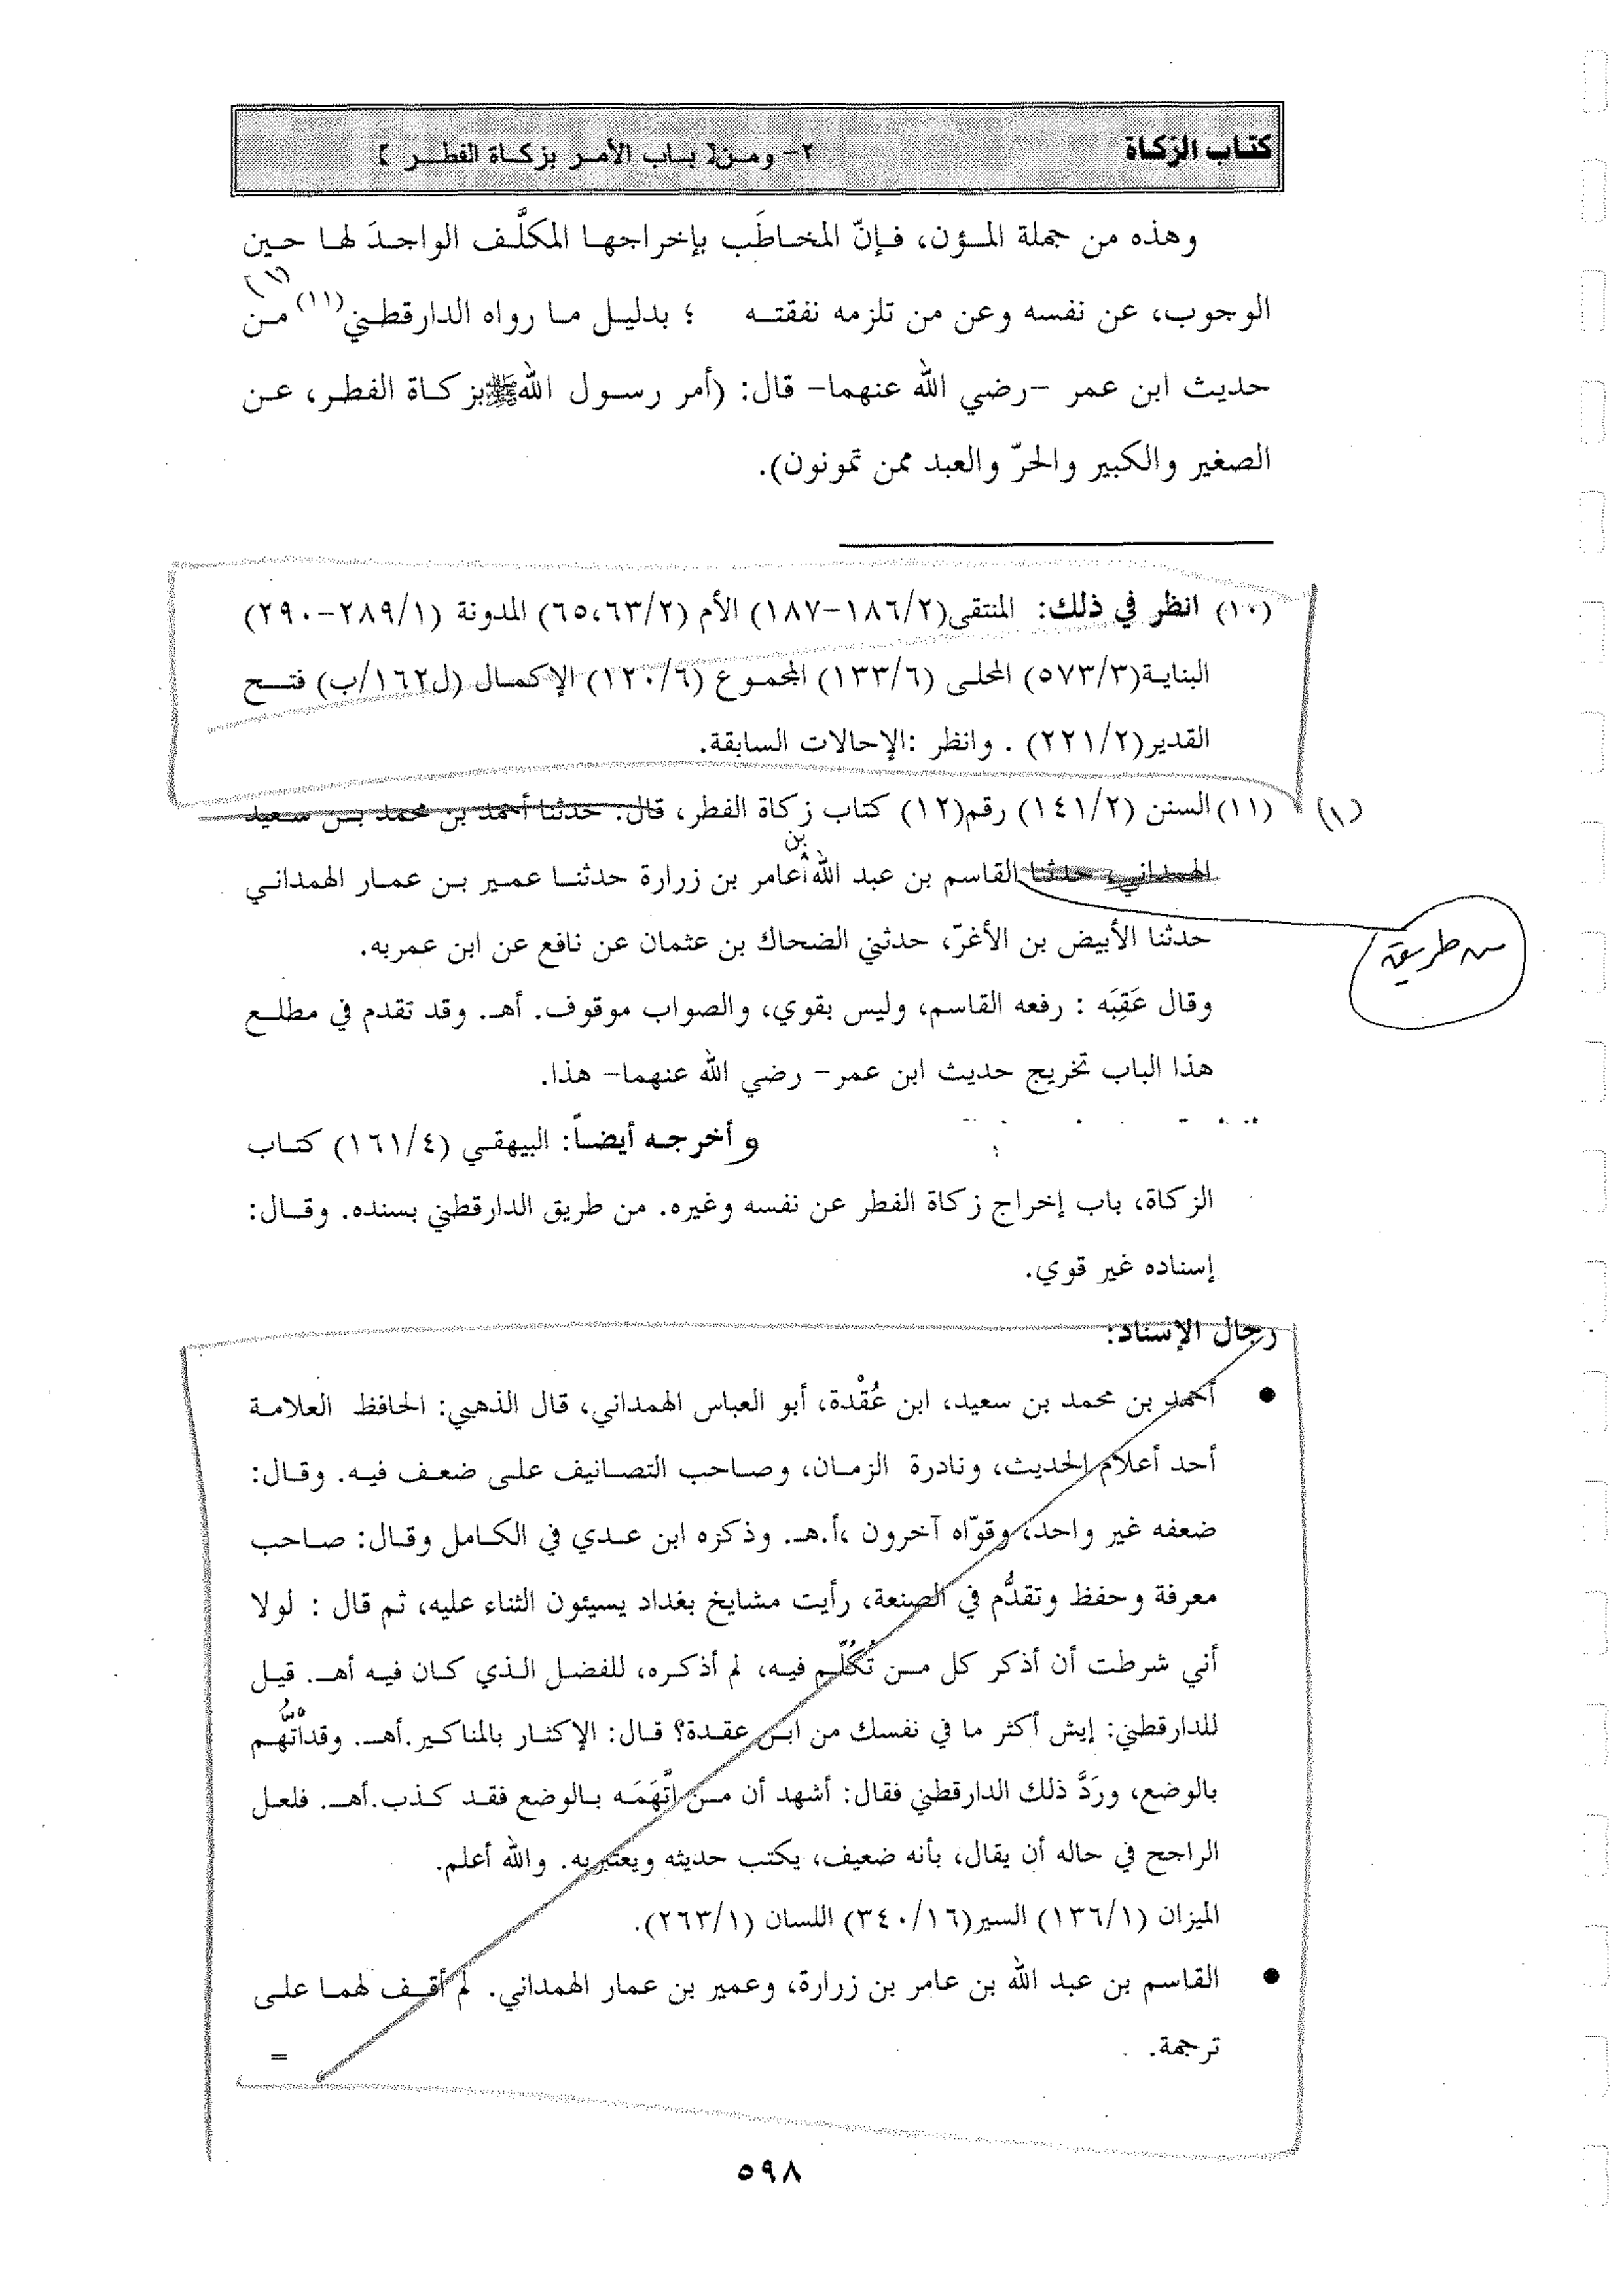 كتاب الزكاة
٢- ومن [ باب الأمر بزكاة الفطر ]
وهذه من جملة المؤن، فإنّ المخاطَب بإخراجها المكلَّف الواجدَ لها حين
(١)
الوجوب، عن نفسه وعن من تلزمه نفقته ؛ بدليل ما رواه الدارقطني(١١) من
حديث ابن عمر -رضي الله عنهما- قال: (أمر رسول الله ﷺ بزكاة الفطر، عن
الصغير والكبير والحرّ والعبد ممن تمونون).
(١٠) انظر في ذلك: المنتقى(١٨٦/٢-١٨٧) الأم (٦٥،٦٣/٢) المدونة (٢٨٩/١-٢٩٠)
البناية(٥٧٣/٣) المحلى (١٣٣/٦) المجموع (١٢٠/٦) الإكمال (ل١٦٢/ب) فتح
القدير(٢٢١/٢) . وانظر :الإحالات السابقة.
(١) (١١) السنن (١٤١/٢) رقم(١٢) كتاب زكاة الفطر، قال: حدثنا أحمد بن محمد بن سعيد
بن
الهمداني، حدثنا القاسم بن عبد الله عامر بن زرارة حدثنا عمير بن عمار الهمداني
من طريق
حدثنا الأبيض بن الأغرّ، حدثني الضحاك بن عثمان عن نافع عن ابن عمر به.
وقال عَقِبَه : رفعه القاسم، وليس بقوي، والصواب موقوف. أهـ. وقد تقدم في مطلع
هذا الباب تخريج حديث ابن عمر- رضي الله عنهما- هذا.
وأخرجه أيضاً: البيهقي (١٦١/٤) كتاب
الزكاة، باب إخراج زكاة الفطر عن نفسه وغيره. من طريق الدارقطني بسنده. وقال:
إسناده غير قوي.
رجال الإسناد:
● أحمد بن محمد بن سعيد، ابن عُقْدة، أبو العباس الهمداني، قال الذهبي: الحافظ العلامة
أحد أعلام الحديث، ونادرة الزمان، وصاحب التصانيف على ضعف فيه. وقال:
ضعفه غير واحد، وقوّاه آخرون ،أ.هـ. وذكره ابن عدي في الكامل وقال: صاحب
معرفة وحفظ وتقدُّم في الصنعة، رأيت مشايخ بغداد يسيئون الثناء عليه، ثم قال : لولا
أني شرطت أن أذكر كل من تُكُلِّم فيه، لم أذكره، للفضل الذي كان فيه أهـ. قيل
للدارقطني: إيش أكثر ما في نفسك من ابن عقدة؟ قال: الإكثار بالمناكير.أهـ. وقد اتُّهم
بالوضع، ورَدَّ ذلك الدارقطني فقال: أشهد أن من اتَّهَمَه بالوضع فقد كذب.أهـ. فلعل
الراجح في حاله أن يقال، بأنه ضعيف، يكتب حديثه ويعتبر به. والله أعلم.
الميزان (١٣٦/١) السير(٣٤٠/١٦) اللسان (٢٦٣/١).
● القاسم بن عبد الله بن عامر بن زرارة، وعمير بن عمار الهمداني. لم أقف لهما على
ترجمة. =
٥٩٨